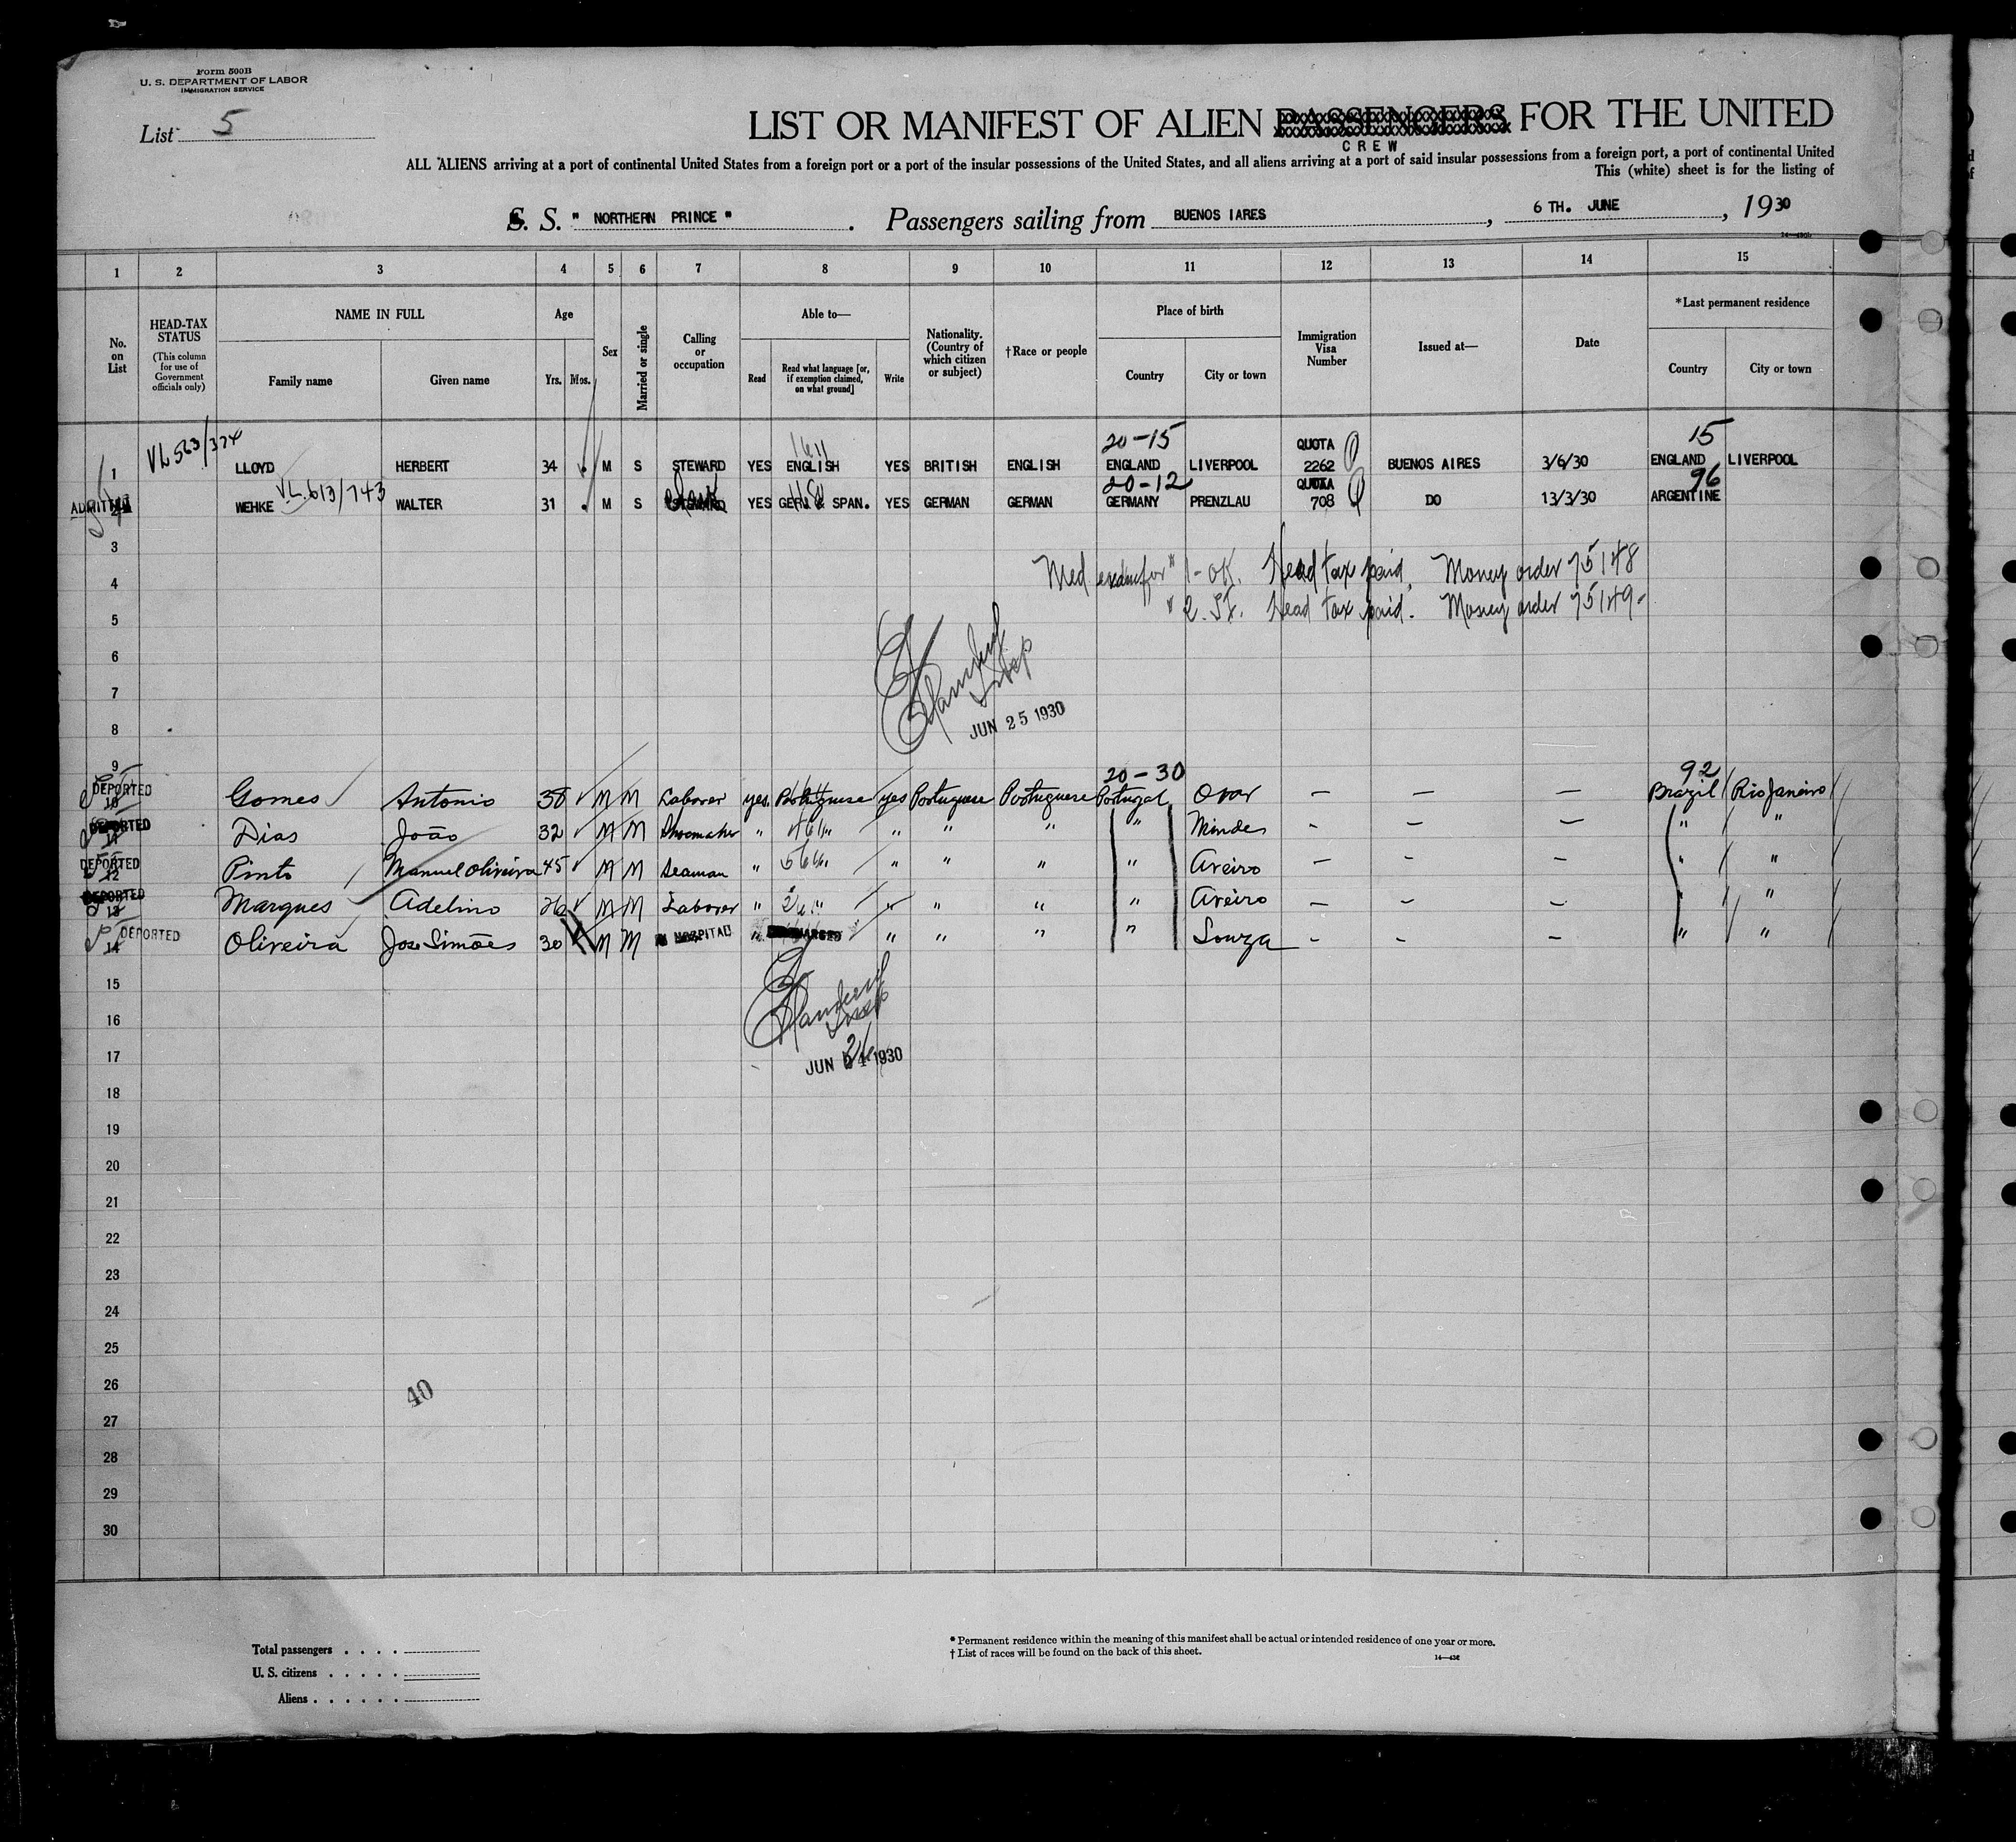 Form 500B
U. S. DEPARTMENT OF LABOR
IMMIGRATION SERVICE
List 5
LIST OR MANIFEST OF ALIEN PASSENGERS FOR THE UNITED
CREW
ALL ALIENS arriving at a port of continental United States from a foreign port or a port of the insular possessions of the United States, and all aliens arriving at a port of said insular possessions from a foreign port, a port of continental United
This (white) sheet is for the listing of
S. S. " NORTHERN PRINCE " . Passengers sailing from BUENOS IARES , 6 TH. JUNE , 1930
1 2 3 4 5 6 7 8 9 10 11 12 13 14 15
No. on List
HEAD-TAX STATUS
(This column for use of Government officials only)
NAME IN FULL
Family name Given name
Age
Yrs. Mos.
Sex
Married or single
Calling or occupation
Able to—
Read
Read what language [or, if exemption claimed, on what ground]
Write
Nationality. (Country of which citizen or subject)
†Race or people
Place of birth
Country City or town
Immigration Visa Number
Issued at—
Date
*Last permanent residence
Country City or town
VL 563/374 20-15 QUOTA 15
1 LLOYD HERBERT 34 M S STEWARD YES ENGLISH YES BRITISH ENGLISH ENGLAND LIVERPOOL 2262 BUENOS AIRES 3/6/30 ENGLAND LIVERPOOL
VL 613/743 20-12 QUOTA 96
ADMITTED 2 WEHKE WALTER 31 M S Clerk YES GER. & SPAN. YES GERMAN GERMAN GERMANY PRENZLAU 708 DO 13/3/30 ARGENTINE
3
Med exam for #1-OK. Head tax paid. Money order 75148
4
" 2. Head tax paid. Money order 75149-
5
6
7
JUN 25 1930
8
9
20-30 92
DEPORTED 10 Gomes Antonio 38 M M Laborer yes Portuguese yes Portuguese Portuguese Portugal Ovar — — — Brazil Rio Janeiro
DEPORTED 11 Dias João 32 M M Shoemaker " " " " " " Mindes - — — " "
DEPORTED 12 Pinto Manuel Oliveira 45 M M Seaman " " " " " " Aveiro — - — " "
DEPORTED 13 Marques Adelino 26 M M Laborer " " " " " " Aveiro — - — " "
DEPORTED 14 Oliveira Jose Simões 30 M M HOSPITAL " " " " " Souza - - — " "
15
16
17
JUN 1930
18
19
20
21
22
23
24
25
26
40
27
28
29
30
Total passengers . . . .
U. S. citizens . . . . .
Aliens . . . . . .
* Permanent residence within the meaning of this manifest shall be actual or intended residence of one year or more.
† List of races will be found on the back of this sheet.